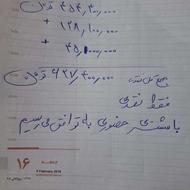 ۴۵۴,۳۰۰,۰۰۰
+
۱۳۸,۱۰۰,۰۰۰
+
۴۵,۰۰۰,۰۰۰
جمع کل نقد ۶۳۷/۴۰۰/۰۰۰
فقط نقدی
با مشتری حضوری به توافق می‌رسیم
۱۶
5 February 2019